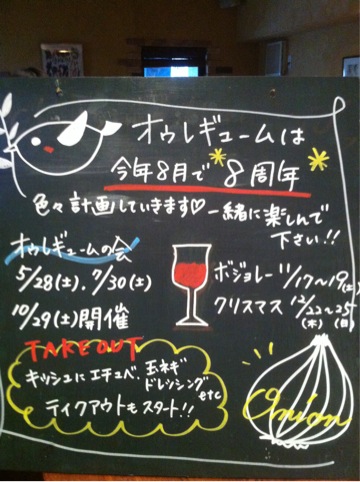 オゥレギュームは
今年8月で*8周年*
色々計画していきます♡一緒に楽しんで
下さい!!
オゥレギュームの会
5/28(土)、7/30(土)
10/29(土)開催
ボジョレー 11/17〜19(土)
クリスマス 12/22〜25
(木) (日)
TAKE OUT
キッシュにエチュベ、玉ネギ
ドレッシング
etc
テイクアウトもスタート!!
Onion